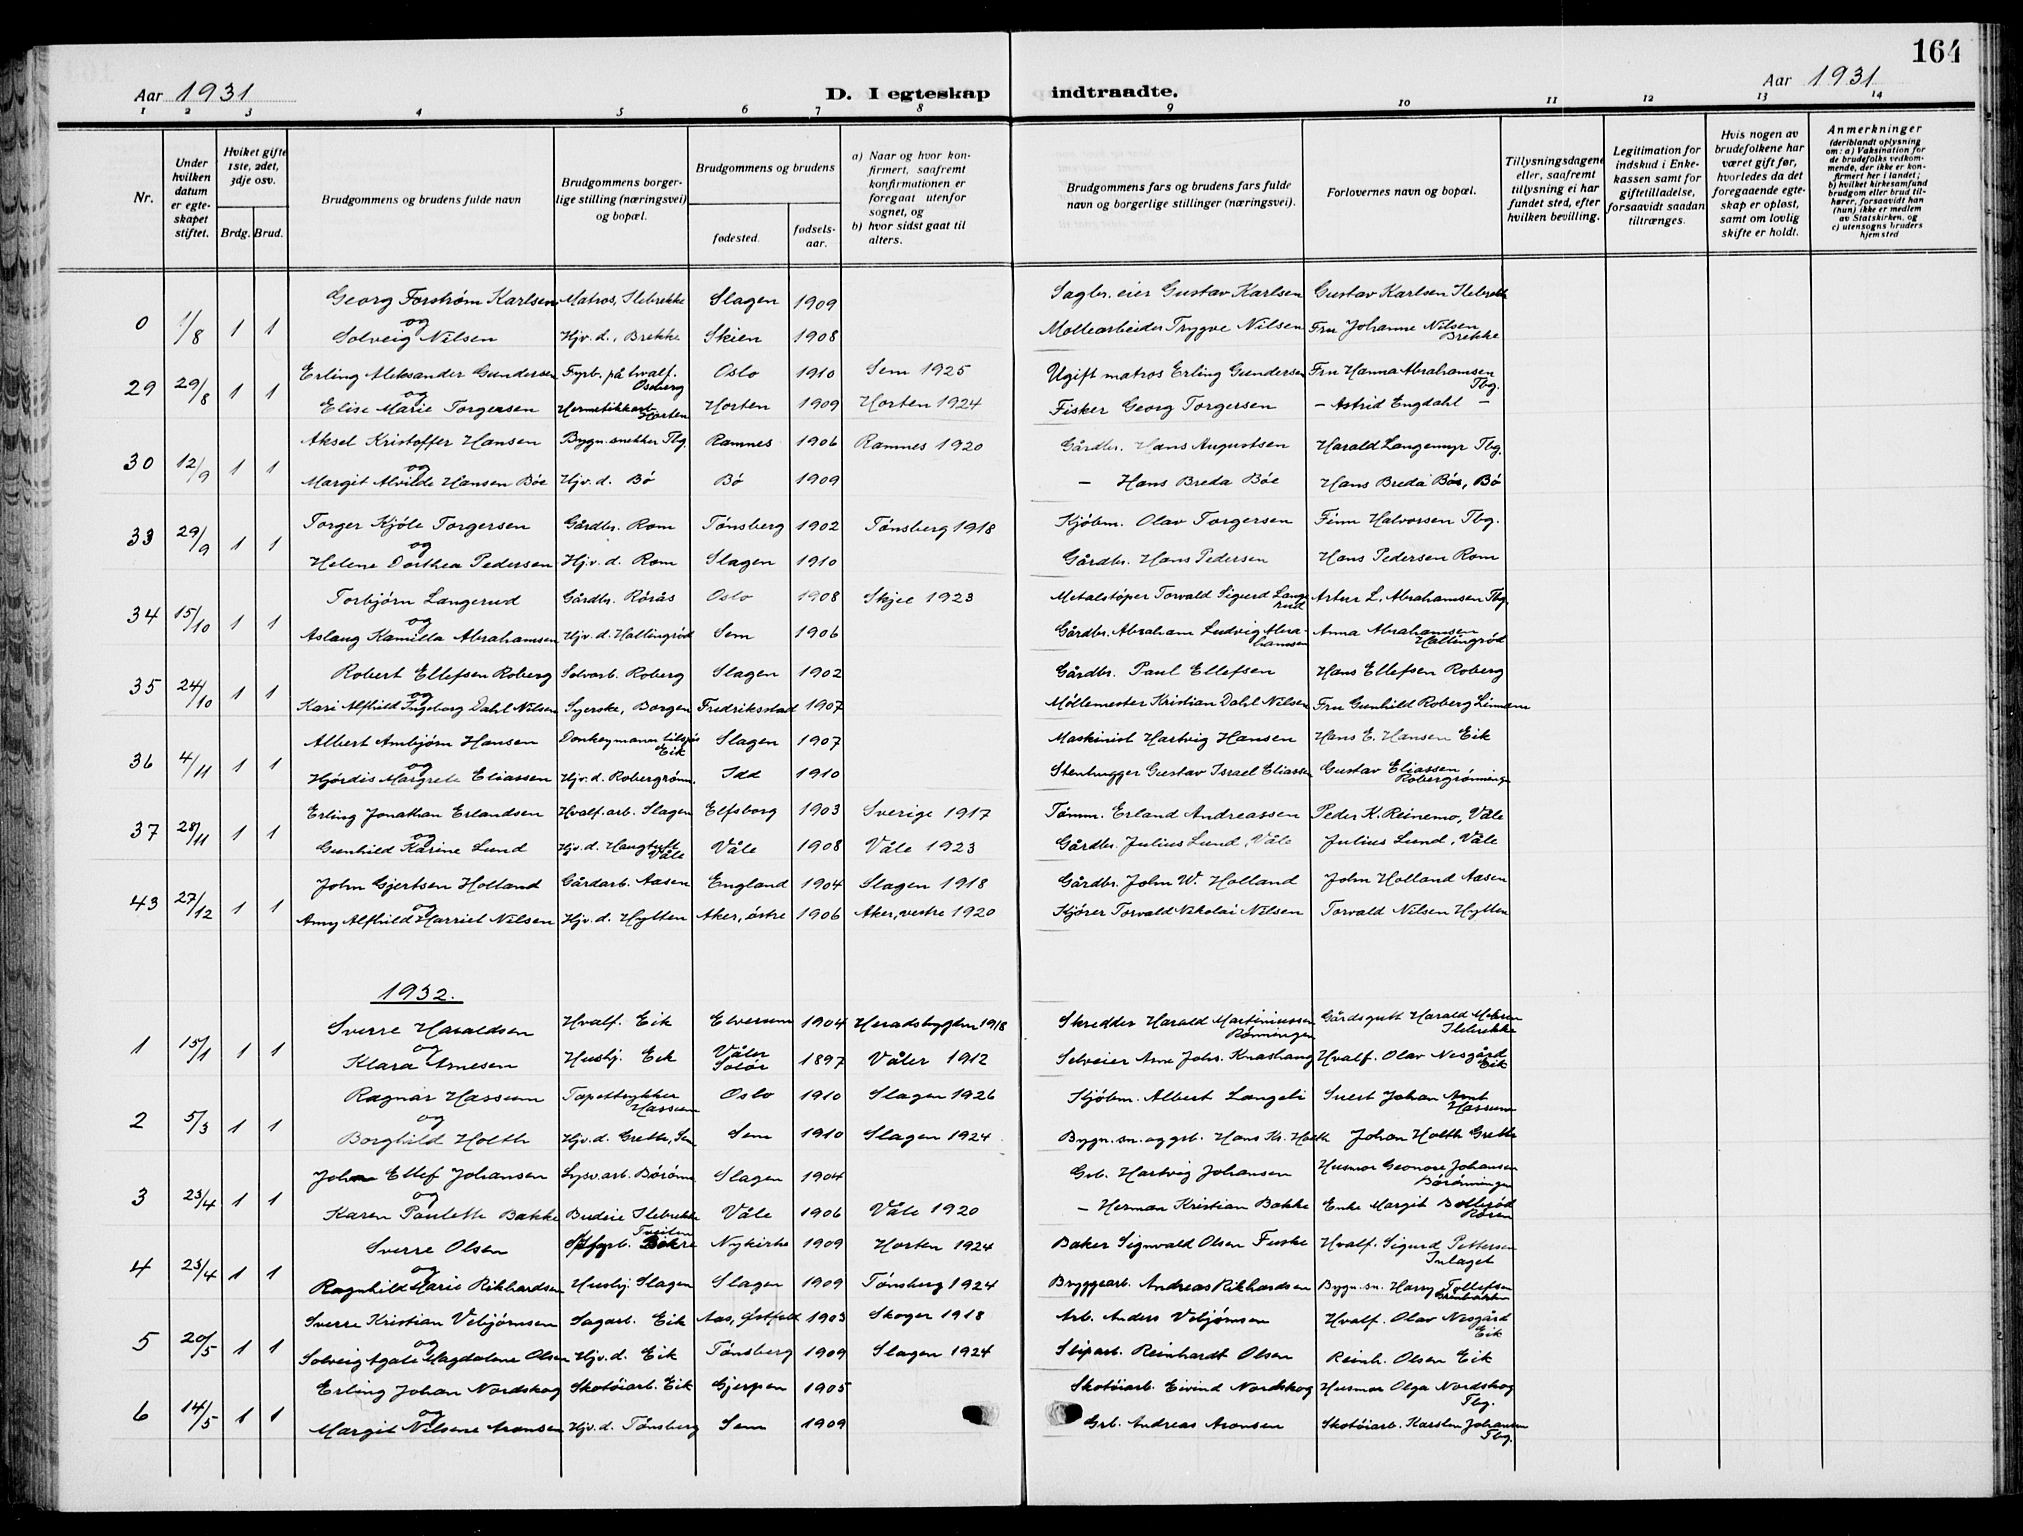 164
Aar 1931
D. I egteskap indtraadte.
Aar 1931
1 2 3 4 5 6 7 8 9 10 11 12 13 14
Nr.
Under hvilken datum er egteskapet stiftet.
Hviket gifte 1ste, 2det, 3dje osv.
Brdg. Brud.
Brudgommens og brudens fulde navn
Brudgommens borgerlige stilling (næringsvei) og bopæl.
Brudgommens og brudens
fødested.
fødselsaar.
a) Naar og hvor konfirmert, saafremt konfirmationen er foregaat utenfor sognet, og
b) hvor sidst gaat til alters.
Brudgommens fars og brudens fars fulde navn og borgerlige stillinger (næringsvei).
Forlovernes navn og bopæl.
Tillysningsdagene eller, saafremt tillysning ei har fundet sted, efter hvilken bevilling.
Legitimation for indskud i Enkekassen samt for giftetilladelse, forsaavidt saadan tiltrænges.
Hvis nogen av brudefolkene har været gift før, hvorledes da det foregaaende egteskap er opløst, samt om lovlig skifte er holdt.
Anmerkninger (deriblandt oplysning om: a) Vaksination for de brudefolks vedkommende, der ikke er konfirmert her i landet; b) hvilket kirkesamfund brudgom eller brud tilhører, forsaavidt han (hun) ikke er medlem av Statskirken, og c) utensogns bruders hjemsted
Georg Forstrøm Karlsen Matros, Ilebrekke Slagen 1909 Sagbr. eier Gustav Karlsen Gustav Karlsen Ilebrekke
0 1/8 1 1 og
Solveig Nilsen Hjv. d., Brekke Skien 1908 Møllearbeider Trygve Nilsen Fru Johanne Nilsen Brekke
Erling Aleksander Gundersen Fyrb. på hvalf. Oseberg Oslo 1910 Sem 1925 Ugift matros Erling Gundersen Fru Hanna Abrahamsen Tbg.
29 29/8 1 1 og
Elise Marie Torgersen Hermetikkarb. Horten Horten 1909 Horten 1924 Fisker Georg Torgersen – Astrid Engdahl –
Aksel Kristoffer Hansen Bygn. snekker Tbg Ramnes 1906 Ramnes 1920 Gårdbr. Hans Augustsen Harald Langemyr Tbg.
30 12/9 1 1 og
Margit Alvilde Hansen Bøe Hjv. d. Bø Bø 1909 – Hans Breda Bøe Hans Breda Bøe, Bø
Torger Kjøle Torgersen Gårdbr. Rom Tønsberg 1902 Tønsberg 1918 Kjøbm. Olav Torgersen Finn Halvorsen Tbg.
33 29/9 1 1 og
Helene Dorthea Pedersen Hj.v. d. Rom Slagen 1910 Gårdbr. Hans Pedersen Hans Pedersen Rom
Torbjørn Langerud Gårdbr. Rørås Oslo 1908 Skjee 1923 Metalstøper Torvald Sigurd Langerud Artur L. Abrahamsen Tbg.
34 15/10 1 1 og
Aslaug Kamilla Abrahamsen Hjv. d. Hallingrød Sem 1906 Gårdbr. Abraham Ludvig Abrahamsen Anna Abrahamsen Hallingrød
Robert Ellefsen Roberg Selvarb. Roberg Slagen 1902 Gårdbr. Paul Ellefsen Hans Ellefsen Roberg
35 24/10 1 1 og
Kari Alfhild Ingeborg Dahl Nilsen Syerske, Borgen Fredriksstad 1907 Møllemester Kristian Dahl Nilsen Fru Gunhild Roberg
Albert Ambjørn Hansen Donkeymann Eik Slagen 1907 Maskinist Hartvig Hansen Hans E. Hansen Eik
36 4/11 1 1 og
Hjørdis Margrete Eliassen Hjv. d. Robergrønn. Idd 1910 Stenhugger Gustav Israel Eliassen Gustav Eliassen Robergrønningen
Erling Jonathan Erlandsen Hvalf. arb. Slagen Elfsborg 1903 Sverige 1917 Tømm. Erland Andreassen Peder K. Reinemo, Våle
37 28/11 1 1 og
Gunhild Karine Lund Hjv. d. Haugtuft Våle Våle 1908 Våle 1923 Gårdbr. Julius Lund, Våle Julius Lund, Våle
John Gjertsen Holland Gårdarb. Aasen England 1904 Slagen 1918 Gårdbr. John W. Holland John Holland Aasen
43 27/12 1 1 og
Amy Alfhild Harriet Nilsen Hjv. d. Hytten Aker, østre 1906 Aker, vestre 1920 Kjører Torvald Nikolai Nilsen Torvald Nilsen Hytten
1932.
Sverre Haraldsen Hvalf. Eik Elverum 1904 Heradsbygden 1918 Skredder Harald Martiniussen Rønningen Gårdsgutt Harald Ilebrekke
1 15/1 1 1 og
Klara Arnesen Hushj. Eik Våler Solør 1897 Våler 1912 Selveier Arne Johs. Knashaug Hvalf. Olav Nesgård Eik
Ragnar Hassum Tapettrykker Hassum Oslo 1910 Slagen 1926 Kjøbm. Albert Langeli Johan Arnt Hassum
2 5/3 1 1 og
Borghild Holth Hjv. d. Grette, Sem Sem 1910 Slagen 1924. Bygn. sn. og grb. Hans Kr. Holth Johan Holth Grette
Johan Ellef Johansen Lysv. arb. Børønn. Slagen 1904 Grb. Hartvig Johansen Husmor Geonore Johansen Børønningen
3 23/4 1 1 og
Karen Paulette Bakke Budeie Ilebrekke Våle 1906 Våle 1920 – Herman Kristian Bakke Enke Margit Bollerød Røren
Sverre Olsen Tveiten Nykirke 1909 Horten 1924 Baker Signvald Olsen Fuske Hvalf. Sigurd Pettersen Inlaget
4 23/4 1 1 og
Ragnhild Marie Rikhardsen Hushj. Slagen Slagen 1909 Tønsberg 1924 Bryggearb. Andreas Rikhardsen Bygn. sn. Harry Tollefsen
Sverre Kristian Vebjørnsen Sagarb. Eik Aas, Østfold 1903 Skoger 1918 Arb. Anders Vebjørnsen Hvalf. Olav Nesgård Eik
5 20/5 1 1 og
Solveig Agate Magdalene Olsen Hjv. d. Eik Tønsberg 1909 Slagen 1924 Sliparb. Reinhardt Olsen Reinh. Olsen Eik
Erling Johan Nordskog Skotøiarb. Eik Gjerpen 1905 Skotøiarb. Eivind Nordskog Husmor Olga Nordskog Tbg.
6 14/5 1 1 og
Margit Nilsine Aronsen Hjv. d. Tønsberg Sem 1909 Grb. Andreas Aronsen Skotøiarb. Karsten Johansen Tbg.